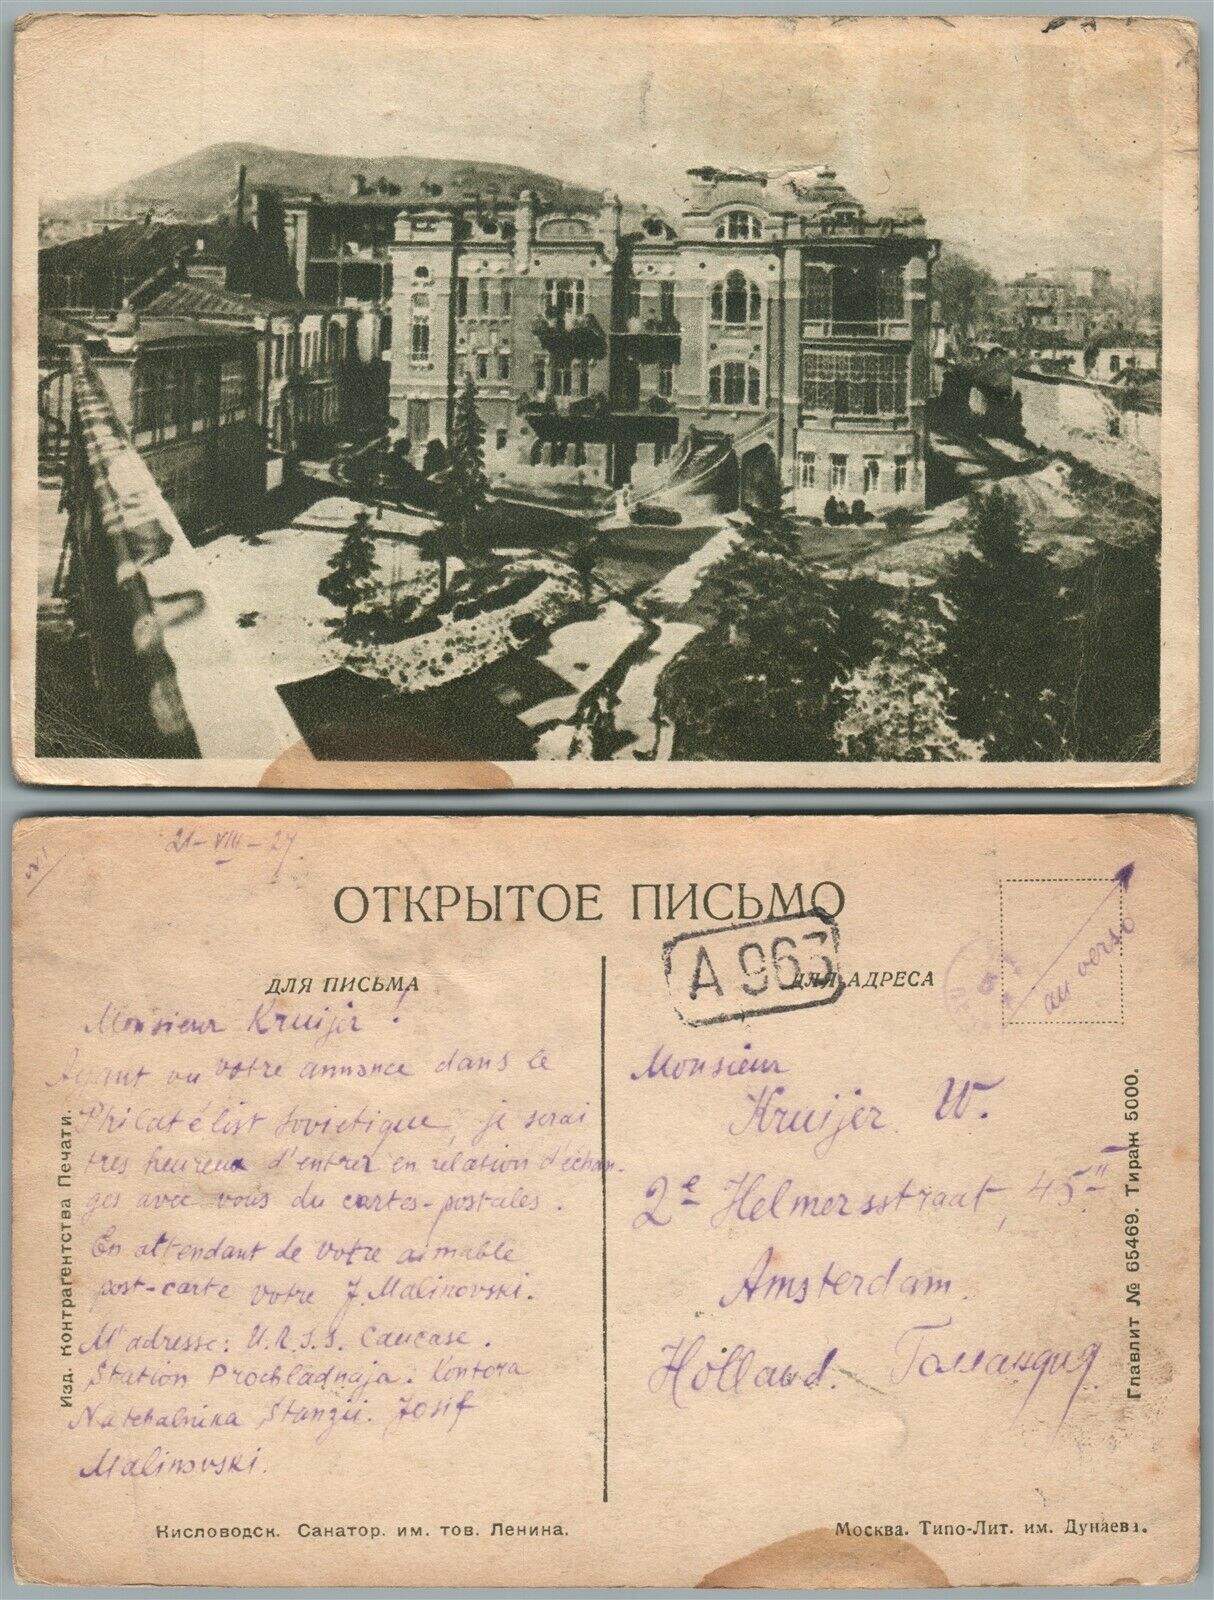 21-VIII-27.
ОТКРЫТОЕ ПИСЬМО
А 963
ДЛЯ ПИСЬМА
ДЛЯ АДРЕСА
au verso
Monsieur Kruijer!
Ayant vu votre annonce dans le
Philatélist Sovietique, je serai
tres heureux d'entrer en relation d'échan-
ges avec vous du cartes-postales.
En attendant de votre aimable
post-carte votre J. Malinovski.
M'adresse: U.R.S.S. Caucase.
Station Prochladnaja. Kontora
Natchalnika Stanzii. Josif
Malinovski.
Monsieur
Kruijer W.
2e Helmersstraat, 45 II
Amsterdam.
Holland. Голландия
Изд. Контрагентства Печати.
Главлит № 65469. Тираж 5000.
Кисловодск. Санатор. им. тов. Ленина.
Москва. Типо-Лит. им. Дунаева.